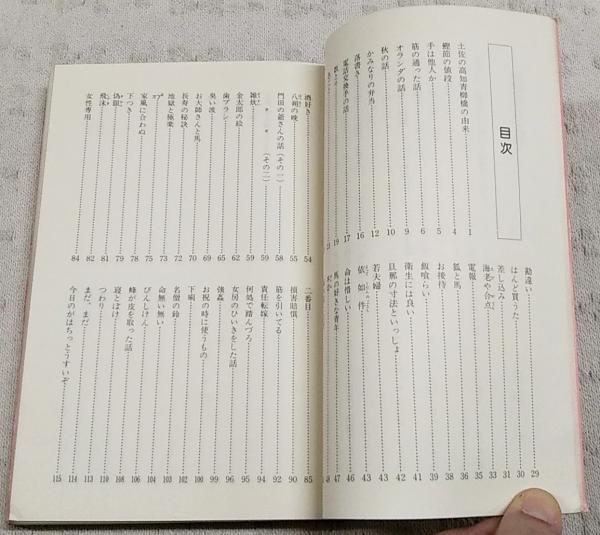 目次
土佐の高知青柳橋の由来 1
鰹節の値段 4
手は他人か 5
筋の通った話 6
オランダの話 9
秋の話 10
かみなりの弁当 12
落書き 16
電話交換手の話 17
19
勘違い 29
はんど買うた 30
差し込み 31
海老や合点 33
電報 35
狐と馬 36
お後待 38
飯喰らい 39
衛生には良い 41
旦那の寸法といっしょ 42
若夫婦 43
依如件 43
命は惜しい 46
馬の好きな青年 47
48
酒好き 54
八朔の晩 55
門田の爺さんの話(その一) 55
〃 〃 (その二) 58
雑炊 59
金太郎の絵 59
歯ブラシ 65
臭い波 68
お大師さんと馬 69
長寿の秘訣 70
地獄と極楽 72
73
家風に合わぬ 75
下つき 78
偽銀 79
飛沫 81
女性専用 82
84
二番目 85
損害賠償 90
筋を引いてる 92
責任転嫁 94
何処で踏んづろ 95
女房のひいきをした話 96
強姦 99
お祝の時に使うもの 100
下痢 102
名僧の鈴 103
命無い無い 104
びんしけん 106
蜂が皮を取った話 108
寝とぼけ 110
つわり 113
まだ、まだ 114
今日のがはちっとうすいぞ 115